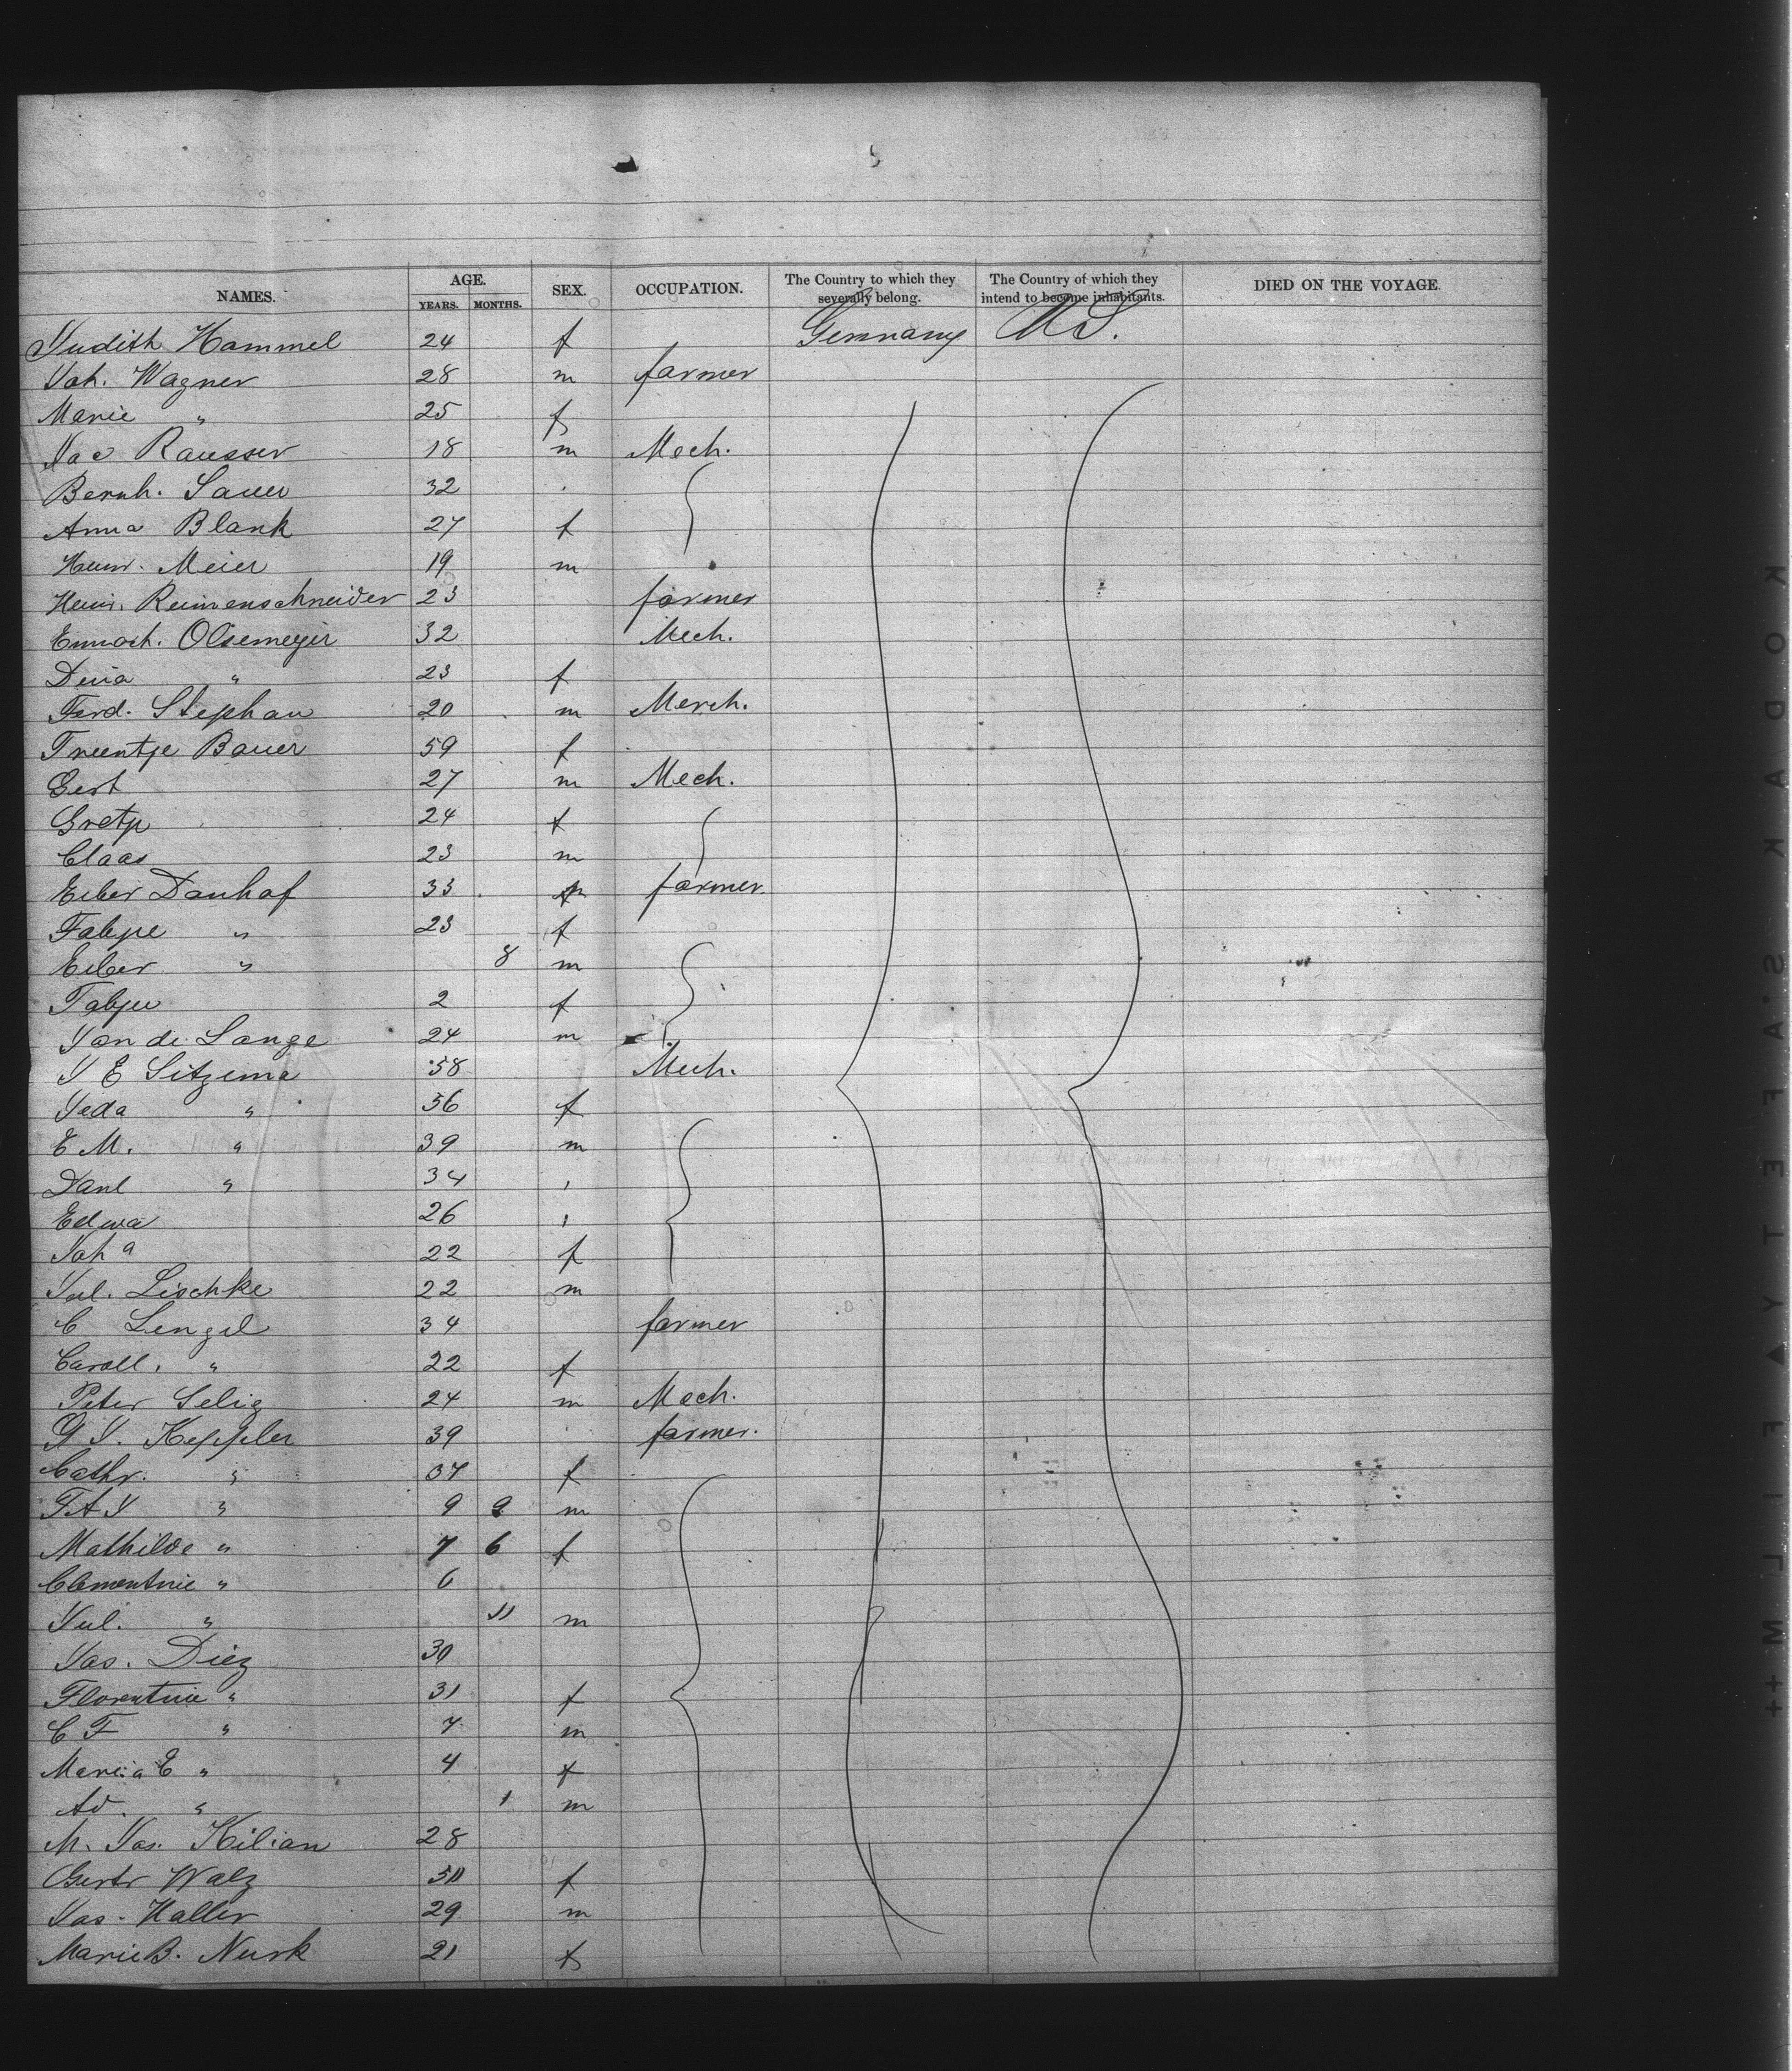 NAMES. AGE. SEX. OCCUPATION. The Country to which they severally belong. The Country of which they intend to become inhabitants. DIED ON THE VOYAGE.
YEARS. MONTHS.
Judith Hammel 24 f Germany U S.
Joh. Wagner 28 m farmer
Marie " 25 f
Jac Rausser 18 m Mech.
Bernh. Sauer 32
Anna Blank 27 f
Heinr. Meier 19 m
Heinr. Reimenschneider 23 farmer
Olsemeyer 32 Mech.
Dina " 23 f
Ferd. Stephan 20 m Merch.
Treentje Bauer 59 f
Gert 27 m Mech.
Gretje 24 f
Claas 23 m
Eiber Danhof 33 m farmer
Fabje " 23 f
Eiber " 8 m
Tabje 2 f
Jan de Lange 24 m
J E Sitzema 58 Mech.
Jeda " 56 f
E M. " 39 m
Danl " 34 "
Edwa 26 "
Joha 22 f
Jul. Lischke 22 m
C Lengel 34 farmer
Caroll. " 22 f
Peter Selig 24 m Mech.
G J. Keppler 39 farmer.
Cathr. " 37 f
F A J " 9 9 m
Mathilde " 7 6 f
Clementine " 6
Jul. " 11 m
Jas. Diez 30
Florentine " 31 f
C F " 7 m
Maria E " 4 f
Ad. " 1 m
M. Jas. Kilian 28
Gertr Walz 50 f
Jas. Haller 29 m
Marie B. Nusk 21 f
KODAK·SAFETY▲FILM++